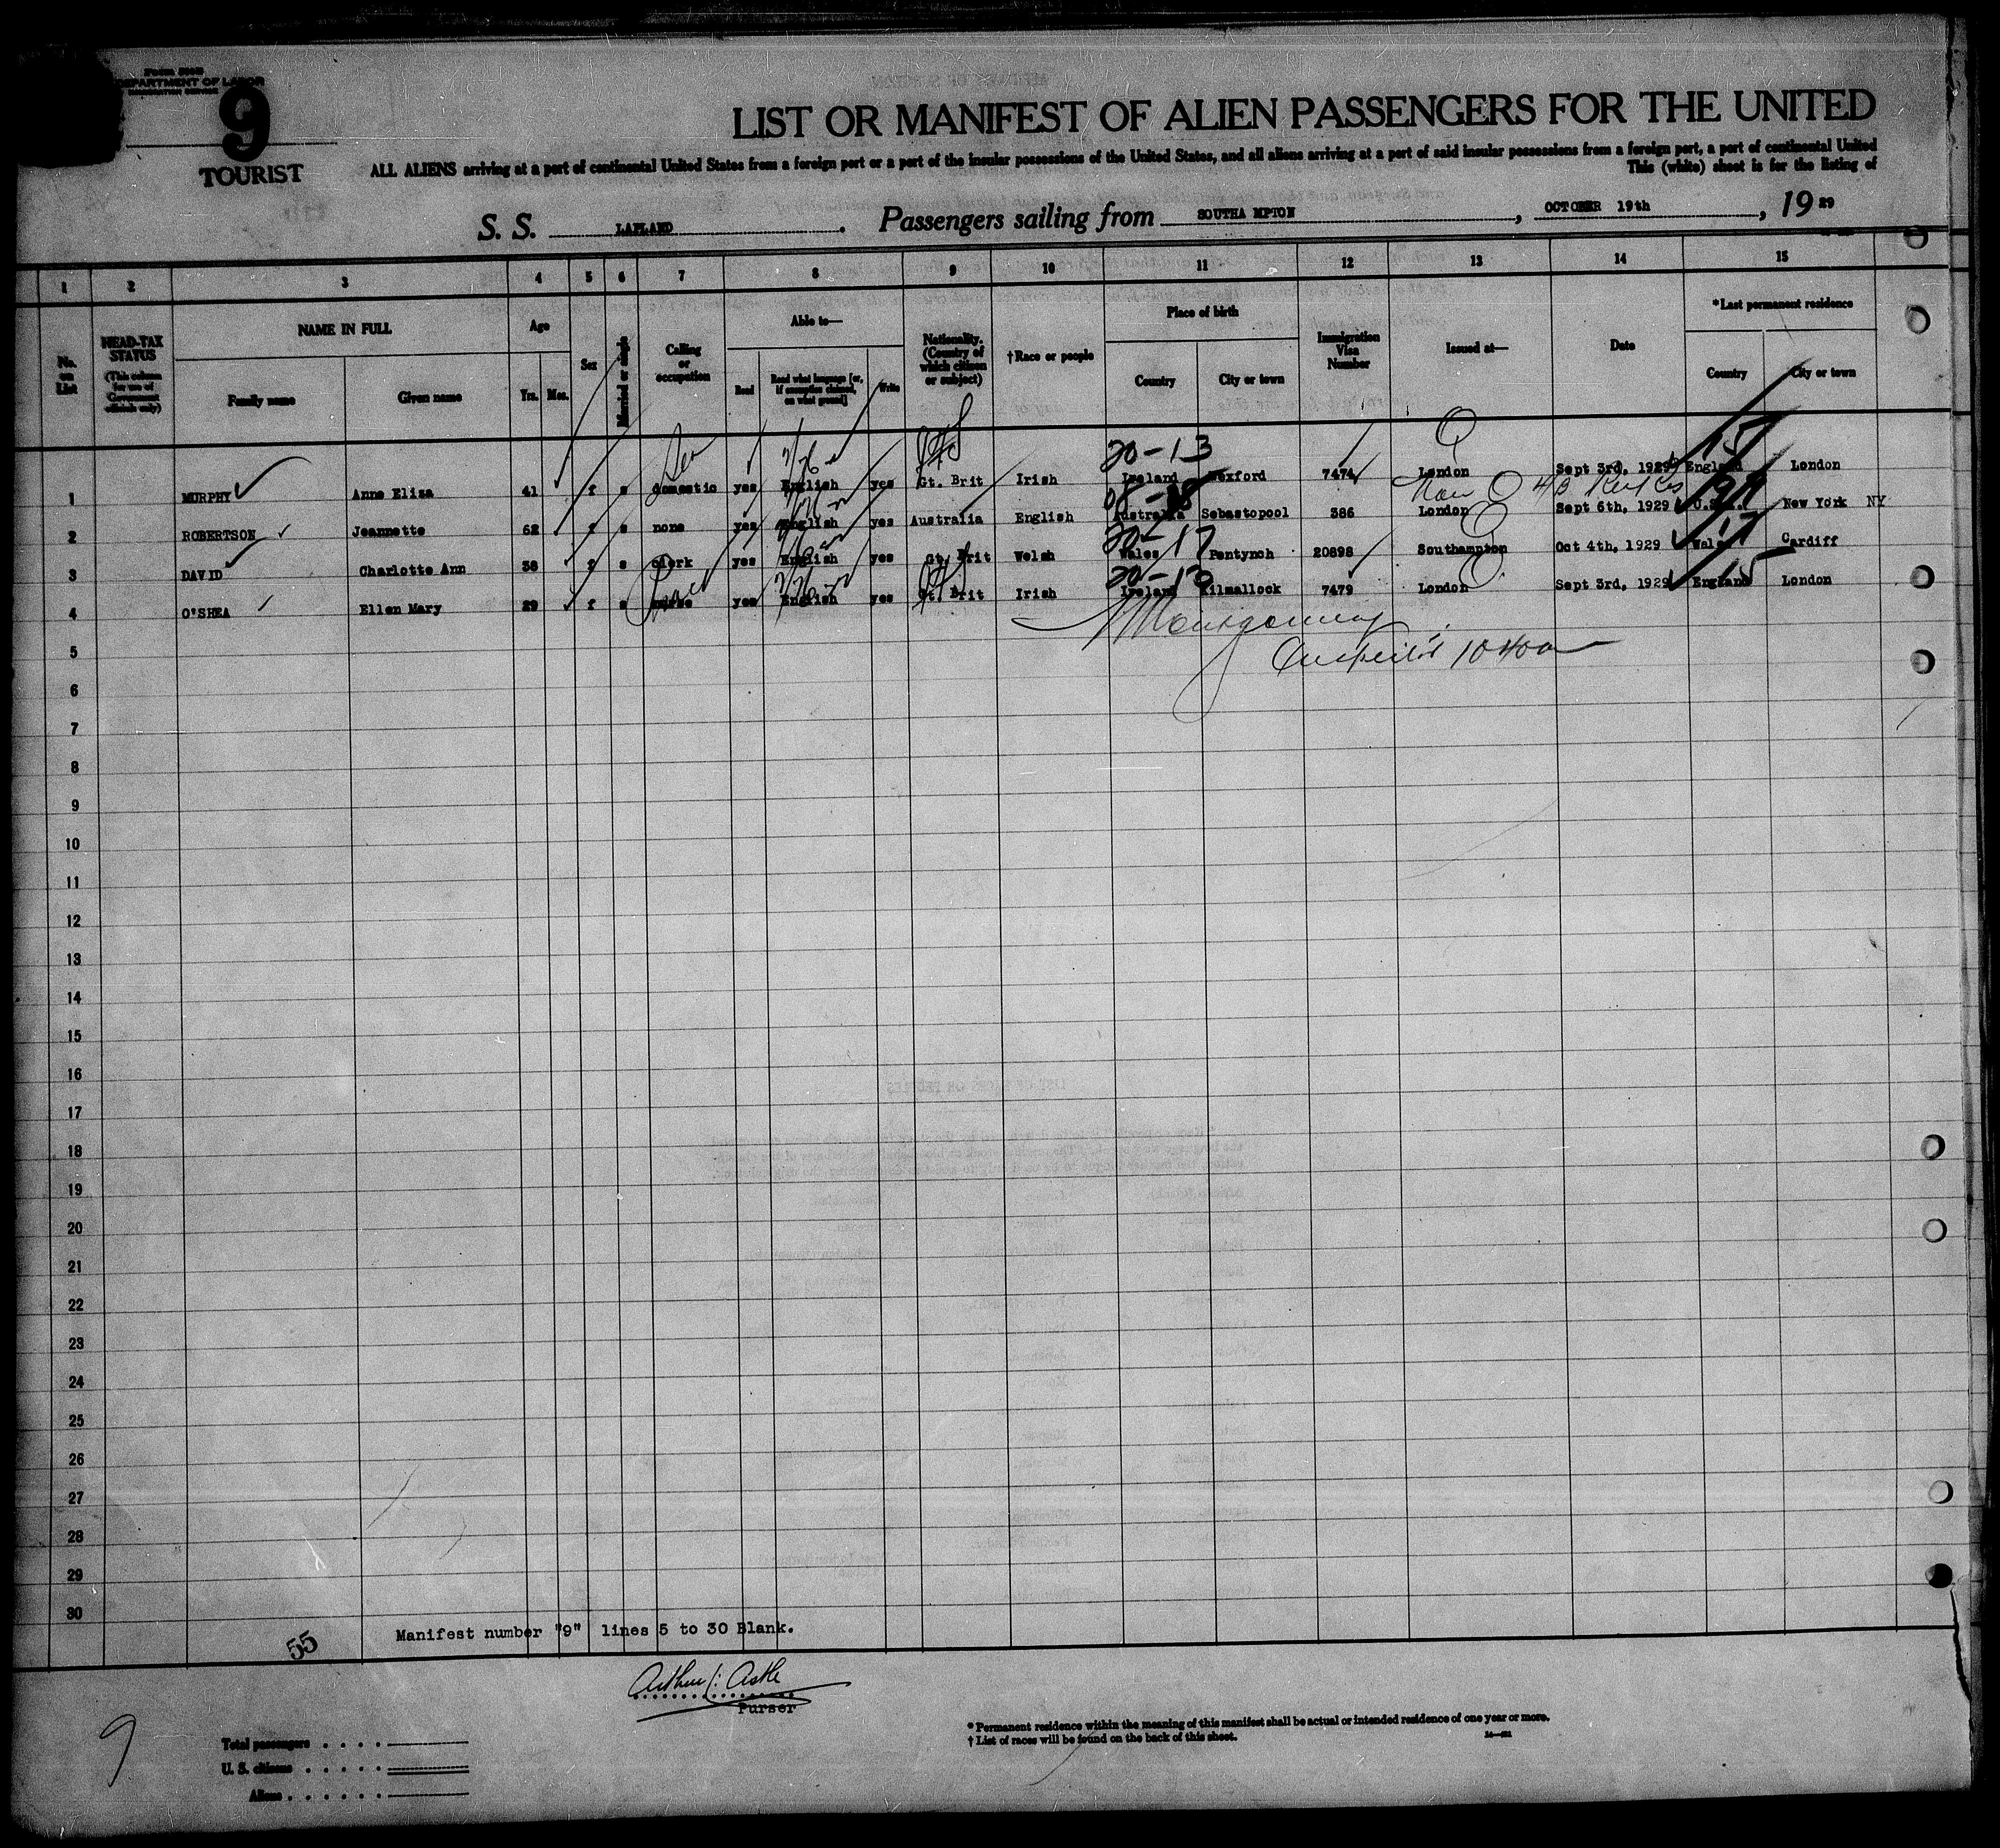 DEPARTMENT OF LABOR
9
TOURIST
LIST OR MANIFEST OF ALIEN PASSENGERS FOR THE UNITED
ALL ALIENS arriving at a port of continental United States from a foreign port or a port of the insular possessions of the United States, and all aliens arriving at a port of said insular possessions from a foreign port, a port of continental United
This (white) sheet is for the listing of
S. S. LAPLAND. Passengers sailing from SOUTHAMPTON, OCTOBER 19th, 1929
1 2 3 4 5 6 7 8 9 10 11 12 13 14 15
No. on List
HEAD-TAX STATUS (This column for use of Government officials only)
NAME IN FULL
Family name Given name
Age
Yrs. Mos.
Sex
Married or single
Calling or occupation
Able to—
Read Read what language [or, if exemption claimed, on what ground] Write
Nationality. (Country of which citizen or subject)
†Race or people
Place of birth
Country City or town
Immigration Visa Number
Issued at—
Date
*Last permanent residence
Country City or town
20-13 15
1 MURPHY Anne Eliza 41 f s domestic yes English yes Gt. Brit Irish Ireland Wexford 7474 London Sept 3rd, 1929 England London
2 ROBERTSON Jeannette 62 f s none yes English yes Australia English Australia Sebastopool 386 London Sept 6th, 1929 New York NY
20-17 17
3 DAVID Charlotte Ann 38 f s clerk yes English yes Gt. Brit Welsh Wales Pentynch 20898 Southampton Oct 4th, 1929 Cardiff
20-13 15
4 O'SHEA Ellen Mary 29 f s nurse yes English yes Gt. Brit Irish Ireland Kilmallock 7479 London Sept 3rd, 1929 England London
Montgomery
5
1040a
6
7
8
9
10
11
12
13
14
15
16
17
18
19
20
21
22
23
24
25
26
27
28
29
30
55
Manifest number "9" lines 5 to 30 Blank.
Arthur C. Astle
Purser
9
Total passengers
U. S. citizens
Aliens
* Permanent residence within the meaning of this manifest shall be actual or intended residence of one year or more.
† List of races will be found on the back of this sheet.